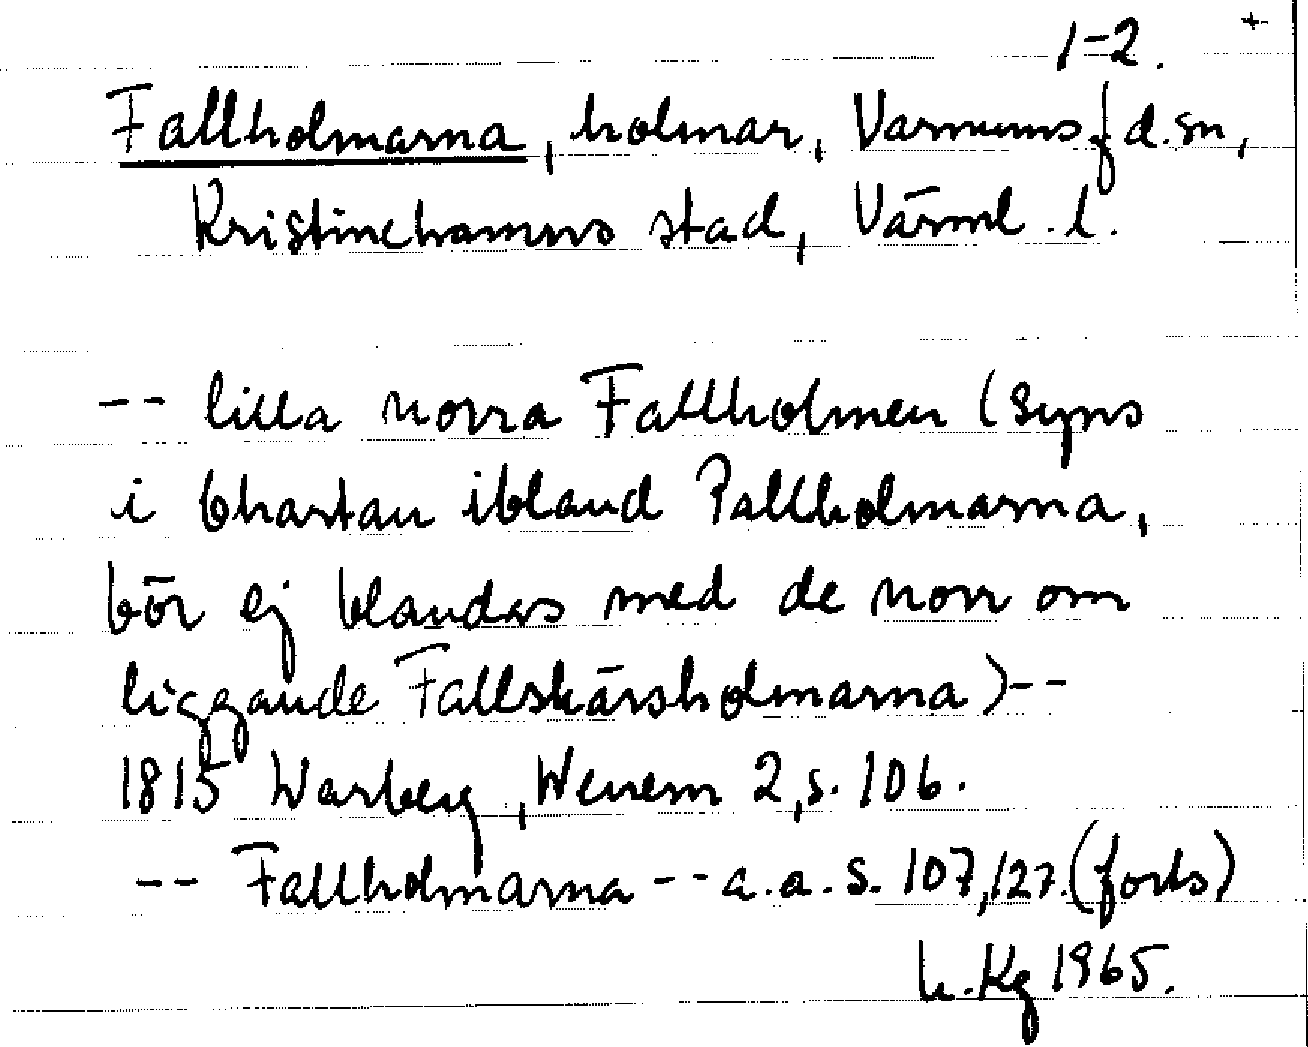 1-2.
Fallholmarna, holmar, Varnums f d. sn,
Kristinehamns stad, Värml. l.
-- lilla norra Fallholmen (Syns
i Chartan ibland Pallholmarna,
bör ej blandas med de norr om
liggande Fallskärsholmarna)--
1815 Warberg, Wenern 2, s. 106.
-- Fallholmarna -- a.a. s. 107, 127. (forts)
Kg 1965.